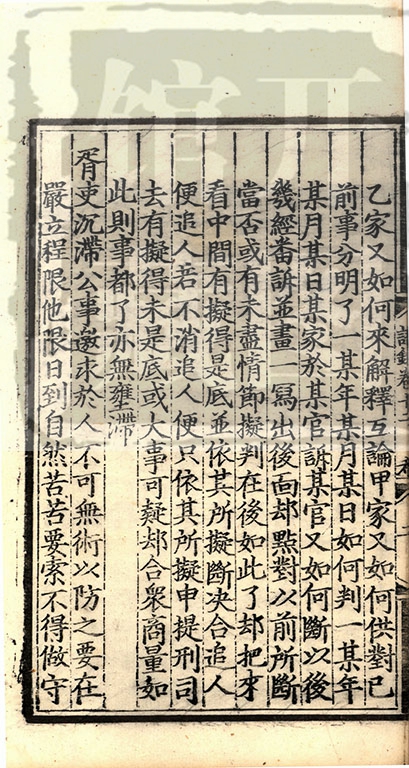 乙家又如何來解釋互論甲家又如何供對已
前事分明了一某年某月某日如何判一某年
某月某日某家於某官訴某官又如何斷以後
幾經番訴並畫一寫出後面却點對以前所斷
當否或有未盡情節擬判在後如此了却把來
看中間有擬得是底並依其所擬斷决合追人
便追人若不消追人便只依其所擬申提刑司
去有擬得未是底或大事可疑却合衆商量如
此則事都了亦無壅滯
胥吏沉滯公事邀求於人不可無術以防之要在
嚴立程限他限日到自然苦苦要索不得做守